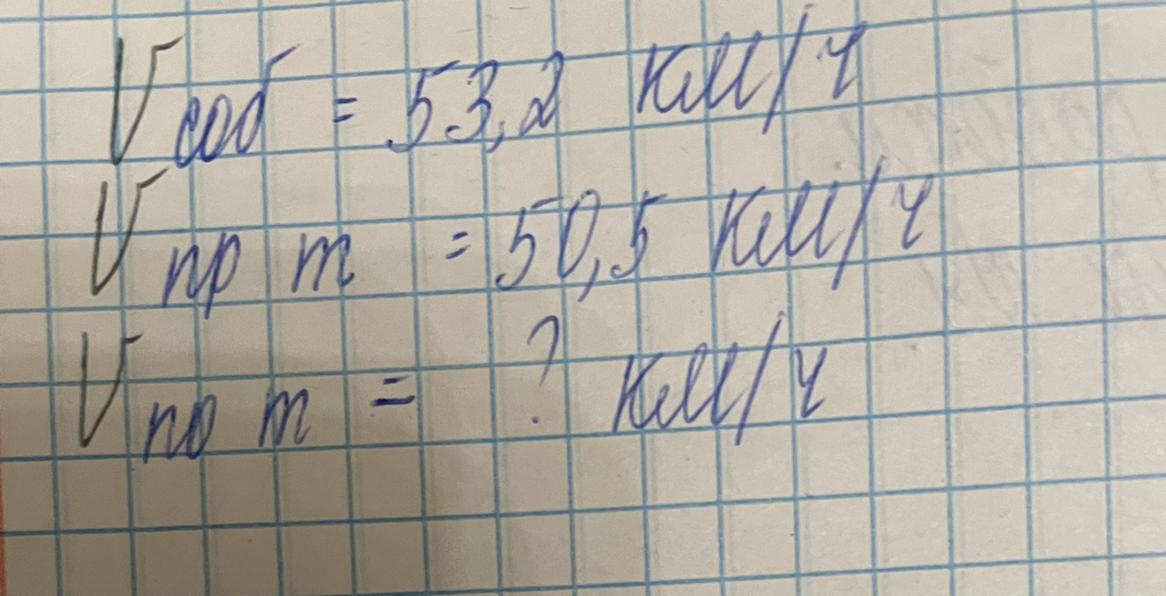 Vсоб = 53,2 км/ч
Vпр т = 50,5 км/ч
Vпо т = ? км/ч